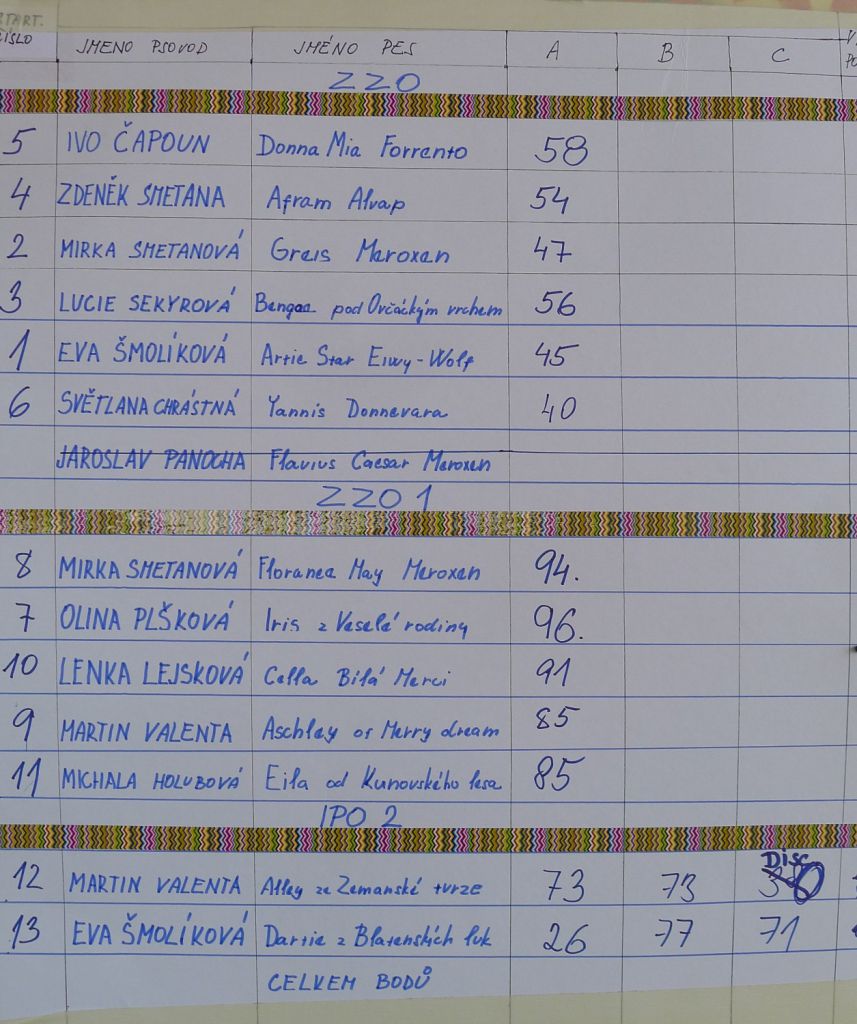 START.
ČÍSLO JMENO PSOVOD JMÉNO PES A B C
ZZO
5 IVO ČAPOUN Donna Mia Forrento 58
4 ZDENĚK SMETANA Afram Alvap 54
2 MIRKA SMETANOVÁ Greis Meroxen 47
3 LUCIE SEKYROVÁ pod Ovčáckým vrchem 56
1 EVA ŠMOLÍKOVÁ Artie Star Eiwy-Wolf 45
6 SVĚTLANA CHRÁSTNÁ Yannis Donnevara 40
JAROSLAV PANOCHA Flavius Caesar Meroxen
ZZO 1
8 MIRKA SMETANOVÁ Floranea May Meroxen 94.
7 OLINA PLŠKOVÁ Iris z Veselé rodiny 96.
10 LENKA LEJSKOVÁ Cella Bílá Merci 91
9 MARTIN VALENTA Aschley of Merry dream 85
11 MICHALA HOLUBOVÁ Eila od Kunovského lesa 85
IPO 2
Disc
12 MARTIN VALENTA ze Zemanské tvrze 73 73
13 EVA ŠMOLÍKOVÁ Dartie z Blatenských luk 26 77 71
CELKEM BODŮ